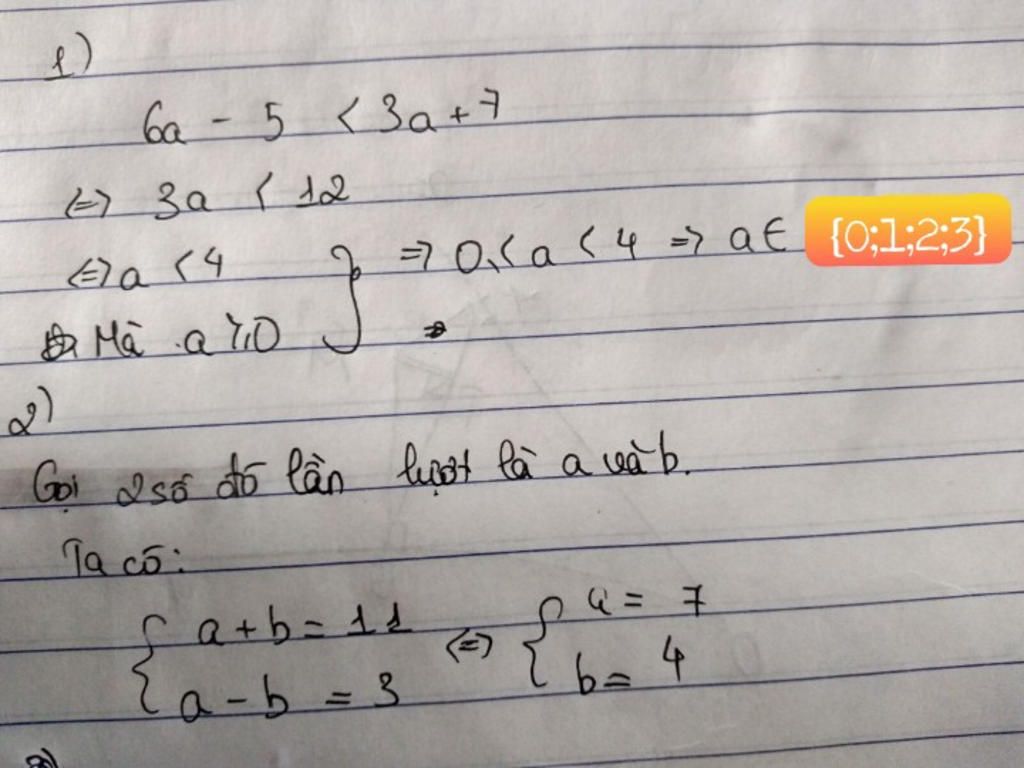 1)
6a - 5 < 3a + 7
<=> 3a < 12
<=> a < 4 } => 0 ≤ a < 4 => a ∈ {0;1;2;3}
Mà a ≥ 0
2)
Gọi 2 số đó lần lượt là a và b.
Ta có:
{ a + b = 11 <=> { a = 7
a - b = 3 b = 4